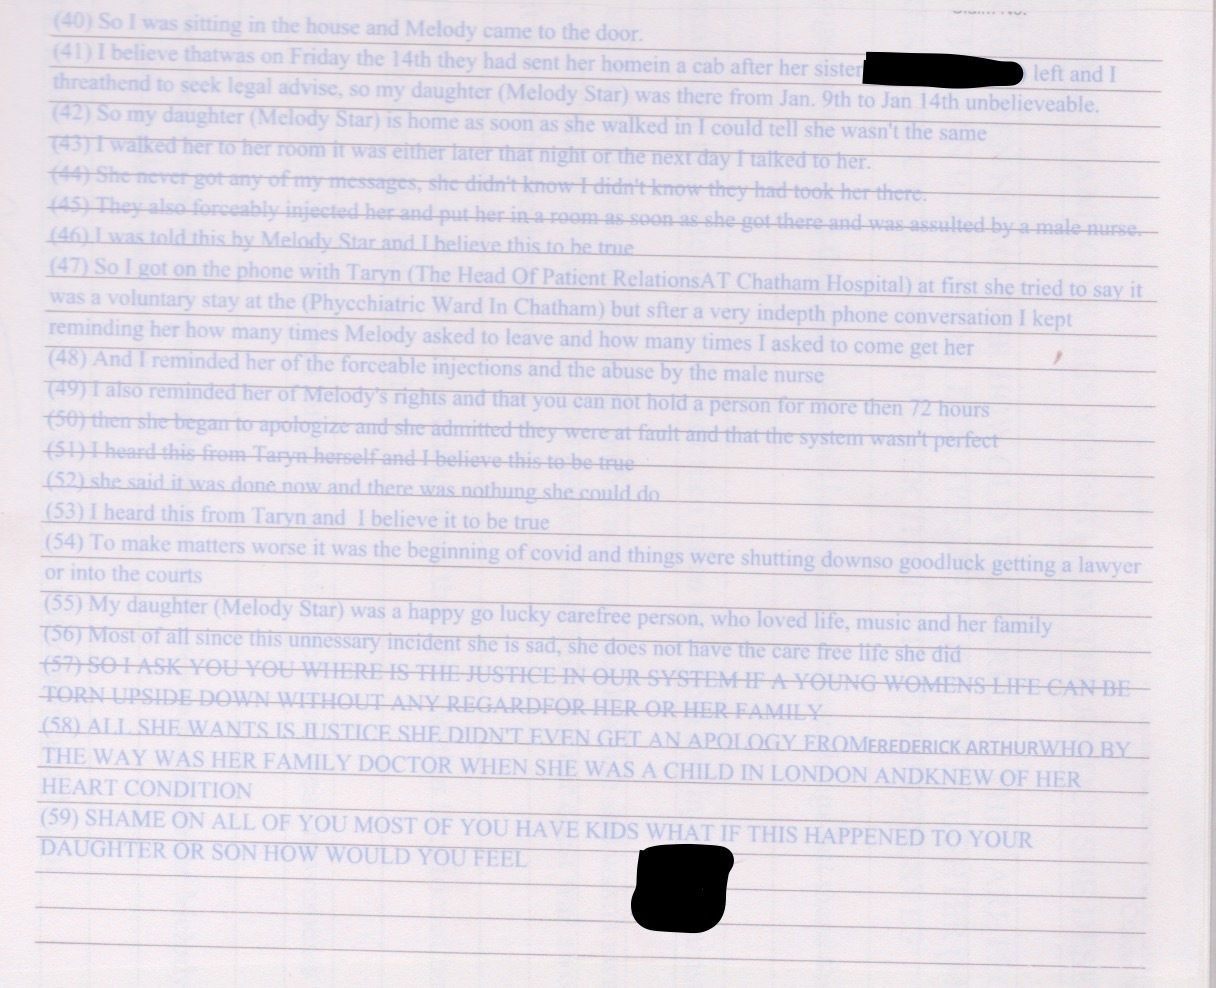 (40) So I was sitting in the house and Melody came to the door.
(41) I believe thatwas on Friday the 14th they had sent her homein a cab after her sister left and I
threathend to seek legal advise, so my daughter (Melody Star) was there from Jan. 9th to Jan 14th unbelieveable.
(42) So my daughter (Melody Star) is home as soon as she walked in I could tell she wasn't the same
(43) I walked her to her room it was either later that night or the next day I talked to her.
(44) She never got any of my messages, she didn't know I didn't know they had took her there.
(45) They also forceably injected her and put her in a room as soon as she got there and was assulted by a male nurse.
(46) I was told this by Melody Star and I believe this to be true
(47) So I got on the phone with Taryn (The Head Of Patient RelationsAT Chatham Hospital) at first she tried to say it
was a voluntary stay at the (Phycchiatric Ward In Chatham) but sfter a very indepth phone conversation I kept
reminding her how many times Melody asked to leave and how many times I asked to come get her
(48) And I reminded her of the forceable injections and the abuse by the male nurse
(49) I also reminded her of Melody's rights and that you can not hold a person for more then 72 hours
(50) then she began to apologize and she admitted they were at fault and that the system wasn't perfect
(51) I heard this from Taryn herself and I believe this to be true
(52) she said it was done now and there was nothung she could do
(53) I heard this from Taryn and I believe it to be true
(54) To make matters worse it was the beginning of covid and things were shutting downso goodluck getting a lawyer
or into the courts
(55) My daughter (Melody Star) was a happy go lucky carefree person, who loved life, music and her family
(56) Most of all since this unnessary incident she is sad, she does not have the care free life she did
(57) SO I ASK YOU YOU WHERE IS THE JUSTICE IN OUR SYSTEM IF A YOUNG WOMENS LIFE CAN BE
TORN UPSIDE DOWN WITHOUT ANY REGARDFOR HER OR HER FAMILY
(58) ALL SHE WANTS IS JUSTICE SHE DIDN'T EVEN GET AN APOLOGY FROMFREDERICK ARTHURWHO BY
THE WAY WAS HER FAMILY DOCTOR WHEN SHE WAS A CHILD IN LONDON ANDKNEW OF HER
HEART CONDITION
(59) SHAME ON ALL OF YOU MOST OF YOU HAVE KIDS WHAT IF THIS HAPPENED TO YOUR
DAUGHTER OR SON HOW WOULD YOU FEEL